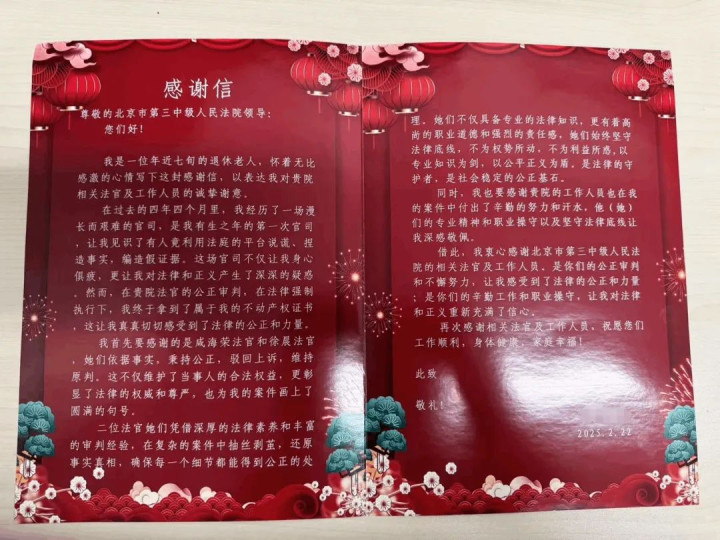 感谢信
尊敬的北京市第三中级人民法院领导:
您们好!
我是一位年近七旬的退休老人，怀着无比
感激的心情写下这封感谢信，以表达我对贵院
相关法官及工作人员的诚挚谢意。
在过去的四年四个月里，我经历了一场漫
长而艰难的官司，是我有生之年的第一次官司
，让我见识了有人竟利用法庭的平台说谎、捏
造事实，编造假证据。这场官司不仅让我身心
俱疲，更让我对法律和正义产生了深深的疑惑
。然而，在贵院法官的公正审判，在法律强制
执行下，我终于拿到了属于我的不动产权证书
，这让我真真切切感受到了法律的公正和力量。
我首先要感谢的是咸海荣法官和徐晨法官
，她们依据事实，秉持公正，驳回上诉，维持
原判。这不仅维护了当事人的合法权益，更彰
显了法律的权威和尊严，也为我的案件画上了
圆满的句号。
二位法官她们凭借深厚的法律素养和丰富
的审判经验，在复杂的案件中抽丝剥茧，还原
事实真相，确保每一个细节都能得到公正的处
理。她们不仅具备专业的法律知识，更有着高
尚的职业道德和强烈的责任感，她们始终坚守
法律底线，不为权势所动，不为利益所惑,以
专业知识为剑，以公平正义为盾。是法律的守
护者，是社会稳定的公正基石。
同时，我也要感谢贵院的工作人员也在我
的案件中付出了辛勤的努力和汗水，他（她）
们的专业精神和职业操守以及坚守法律底线让
我深感敬佩。
借此，我衷心感谢北京市第三中级人民法
院的相关法官及工作人员，是你们的公正审判
和不懈努力，让我感受到了法律的公正和力量
；是你们的辛勤工作和职业操守，让我对法律
和正义重新充满了信心。
再次感谢相关法官及工作人员，祝愿您们
工作顺利，身体健康，家庭幸福！
此致
敬礼！
2025.2.22